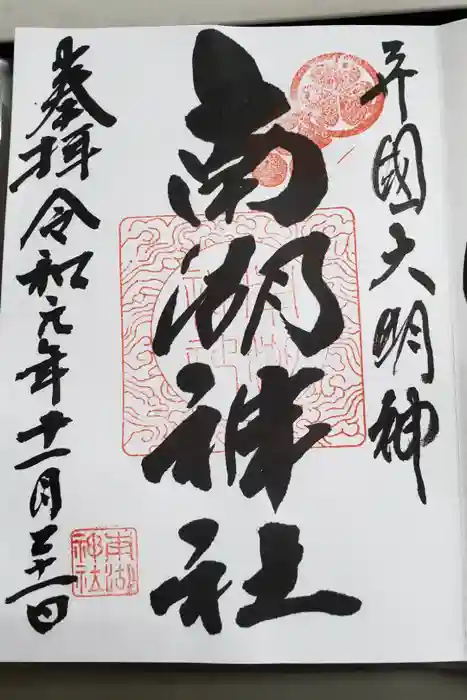 守國大明神
南湖神社
奉拝 令和元年十一月二十一日
南湖神社